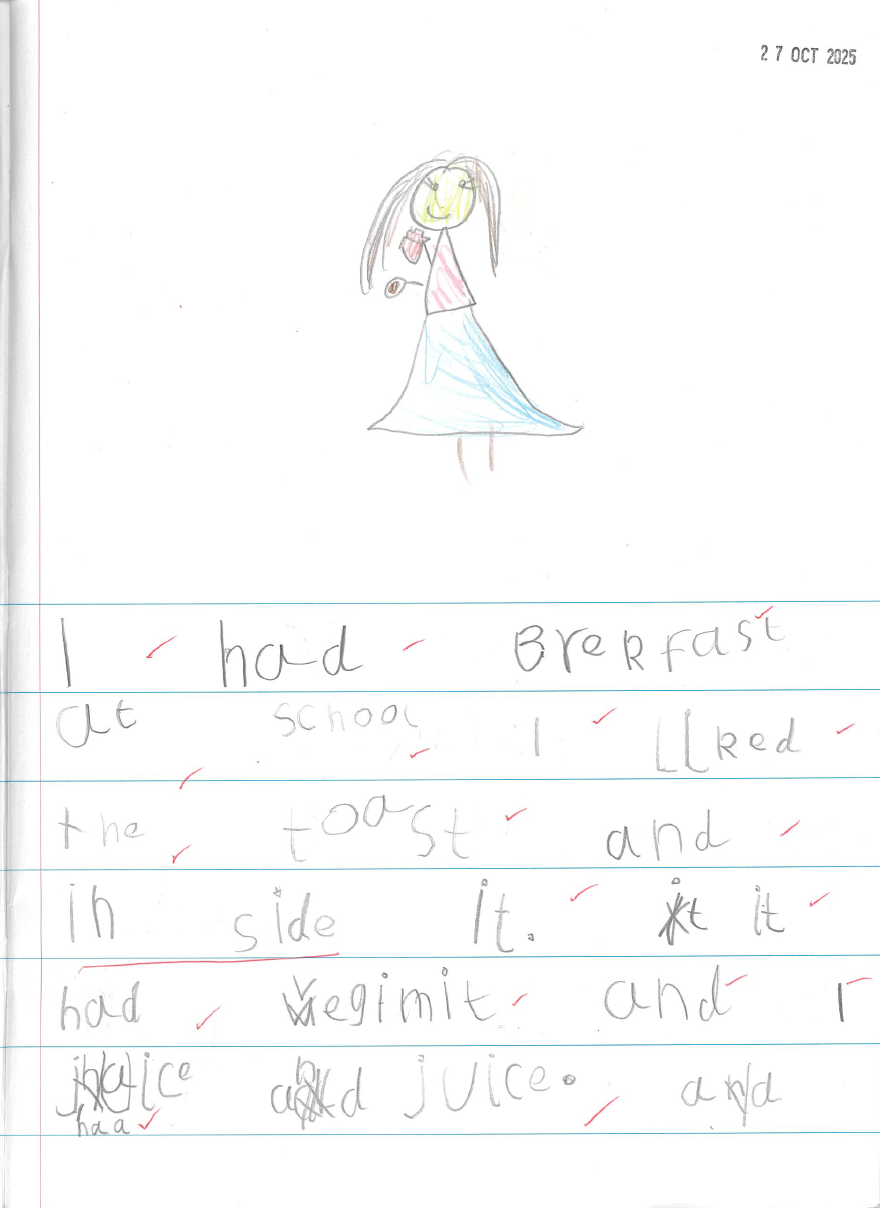 27 OCT 2025
I had Brekfast
at school I liked
the toast and
in side it. it it
had vegimit and I
juice and juice. and
had